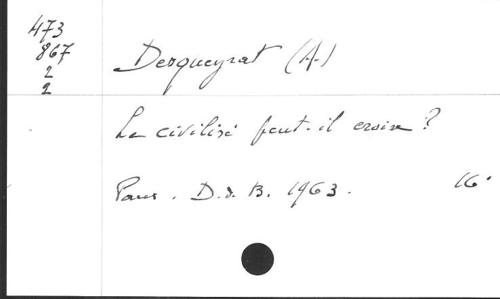 473
867
2
2
Desqueyrat (A.)
Le civilisé peut-il croire ?
Paris. D.d.B. 1963.
16°